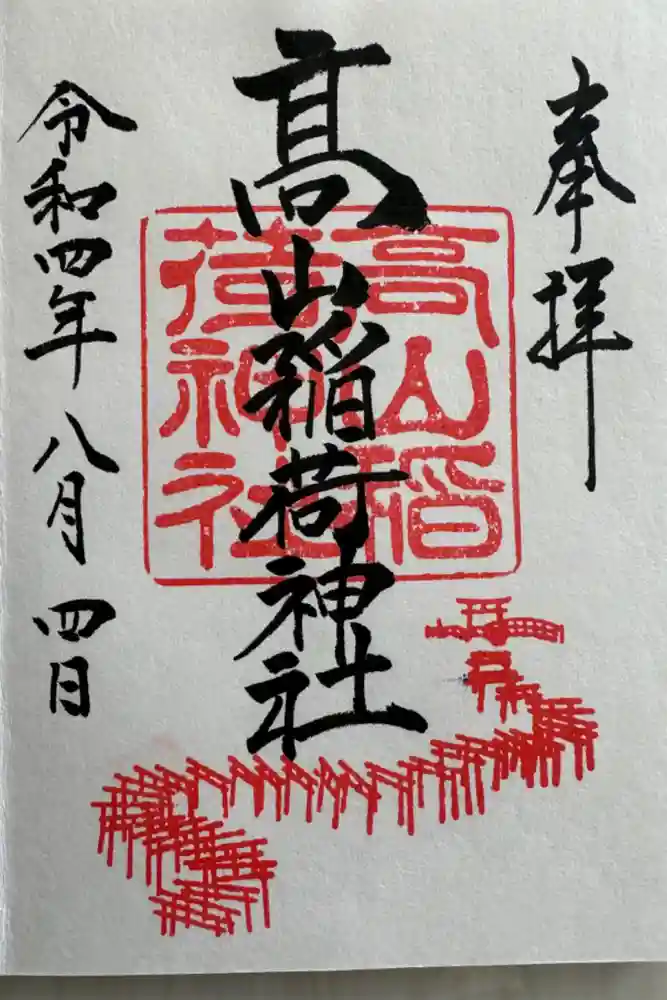 奉拝
髙山稲荷神社
高山稲
荷神社
令和四年八月四日